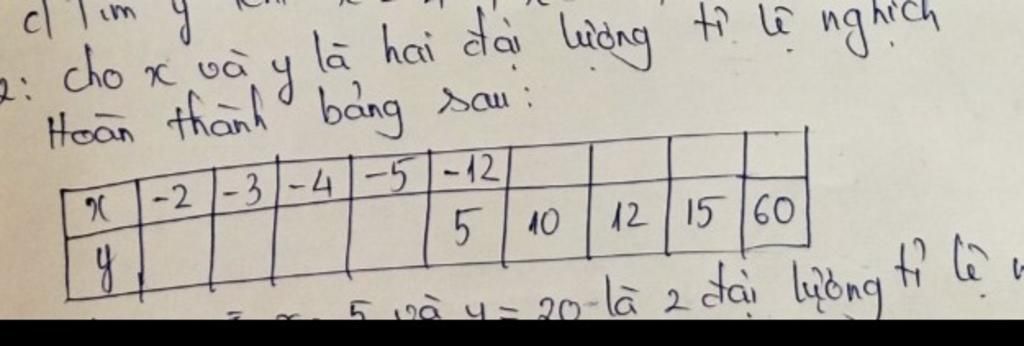 c) Tìm y
2: Cho x và y là hai đại lượng tỉ lệ nghịch
Hoàn thành bảng sau:
x -2 -3 -4 -5 -12
y 5 10 12 15 60
5 và y = 20 là 2 đại lượng tỉ lệ